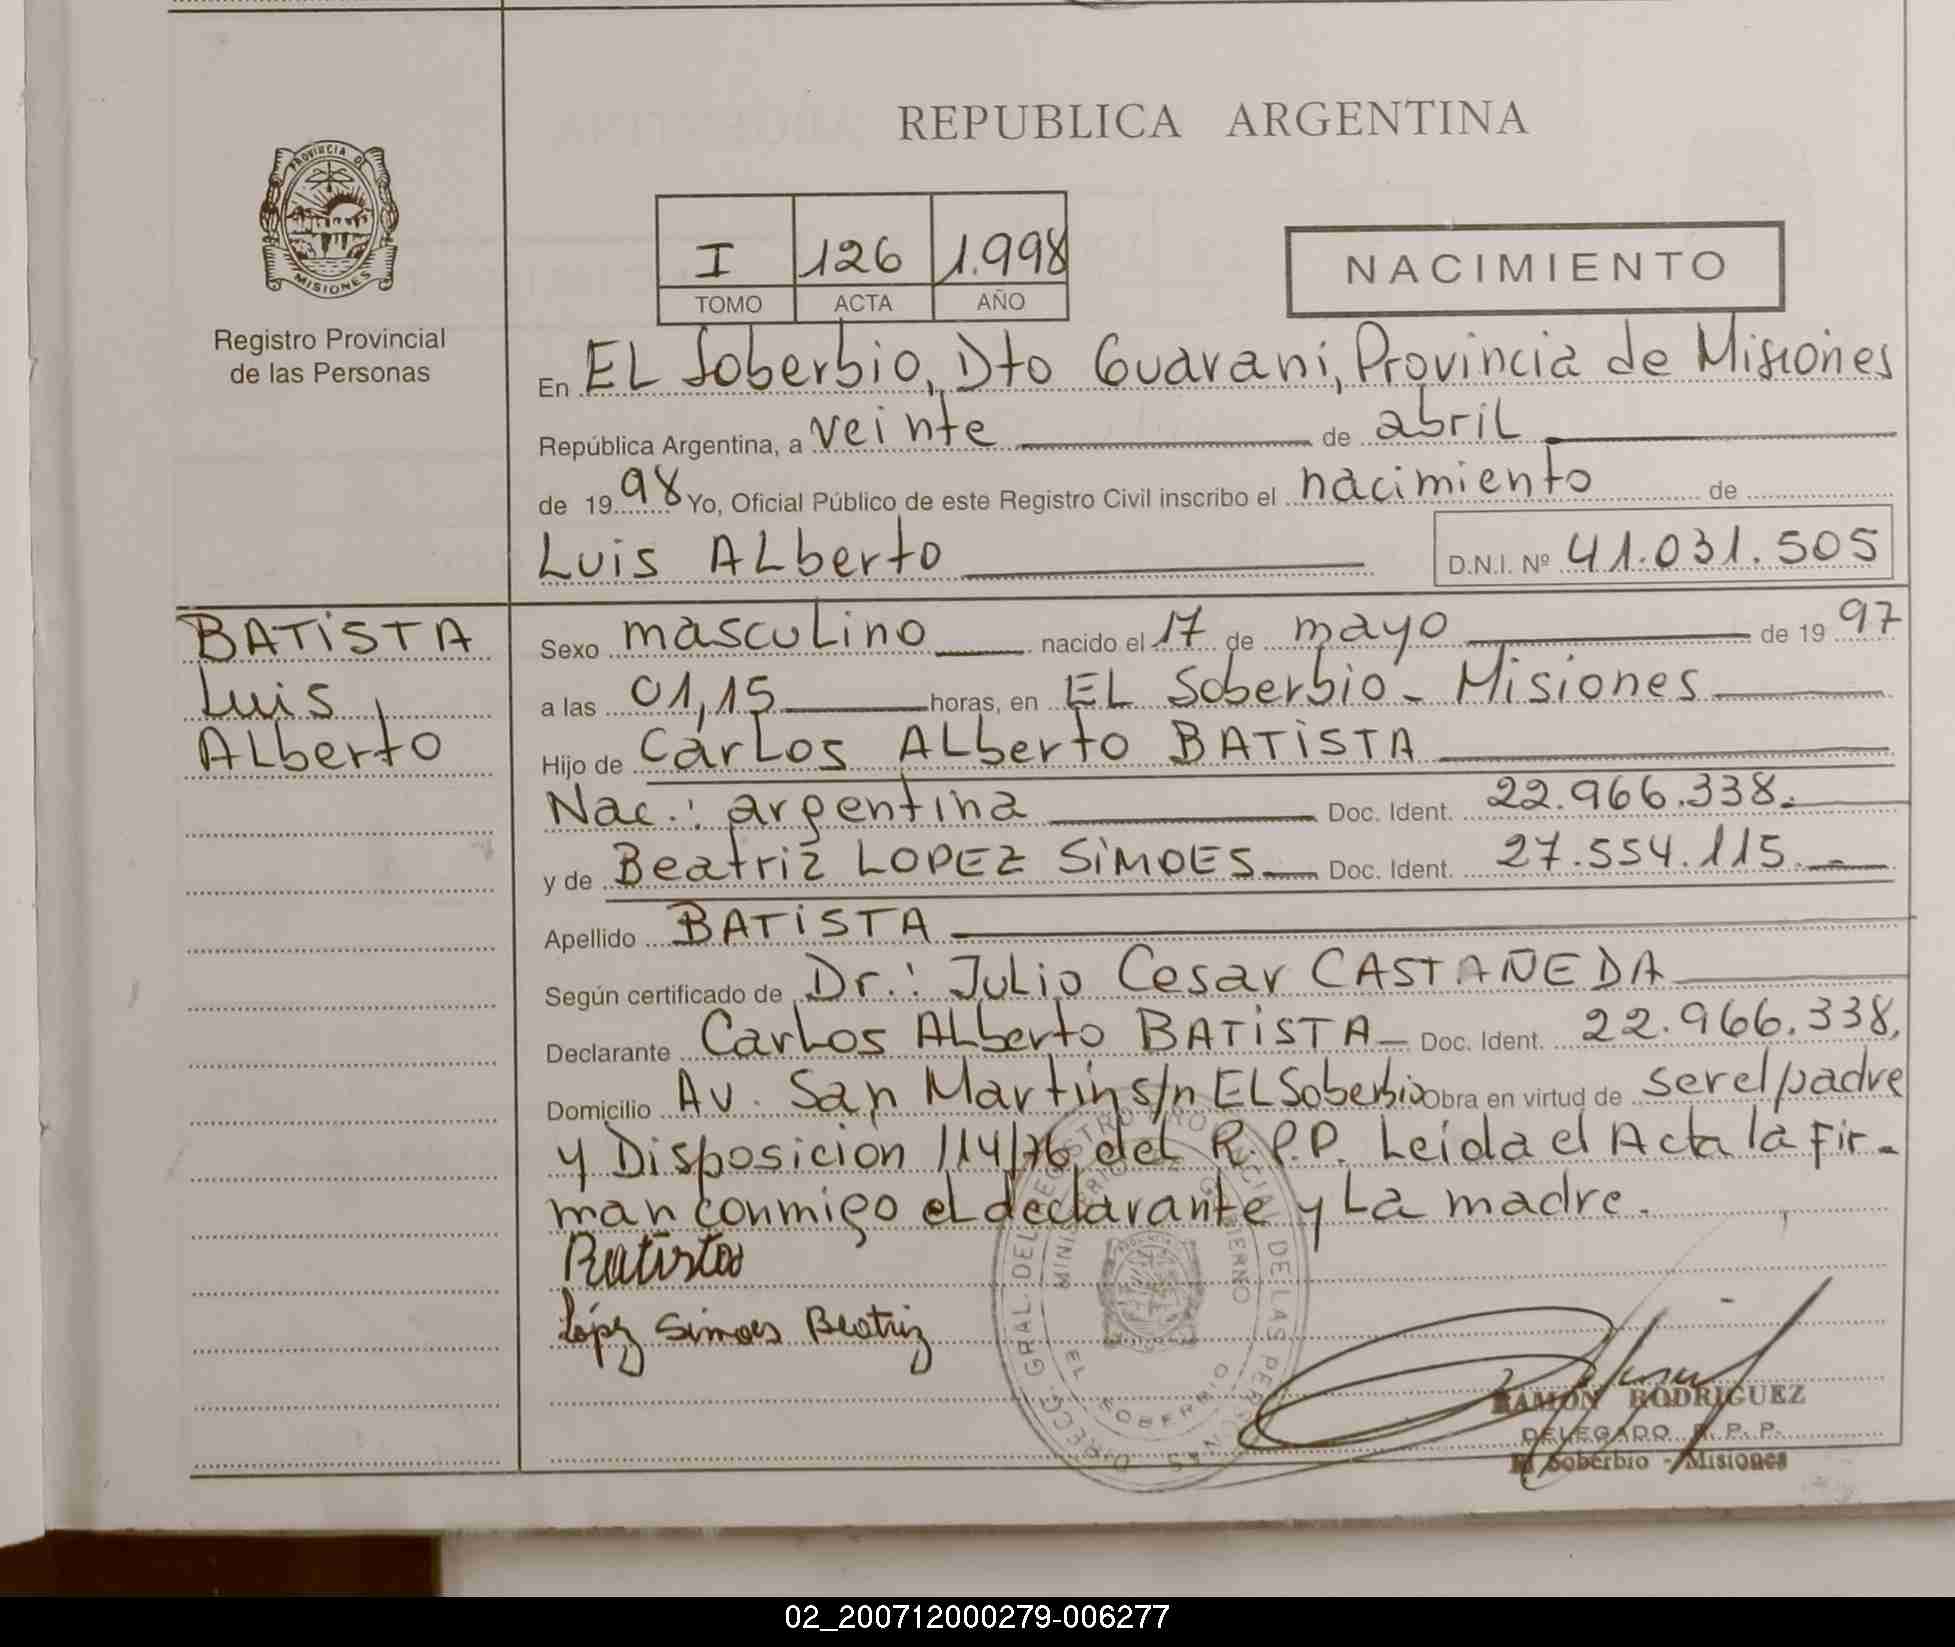 REPUBLICA ARGENTINA
PROVINCIA DE
MISIONES
Registro Provincial
de las Personas
I 126 1.998
TOMO ACTA AÑO
NACIMIENTO
En EL Soberbio, Dto Guaraní, Provincia de Misiones
República Argentina, a veinte de abril
de 1998 Yo, Oficial Público de este Registro Civil inscribo el nacimiento de
Luis ALberto D.N.I. Nº 41.031.505
BATISTA
Luis
ALberto
Sexo mascuLino nacido el 17 de mayo de 1997
a las 01,15 horas, en EL Soberbio - Misiones
Hijo de CarLos ALberto BATISTA
Nac.: argentina Doc. Ident. 22.966.338.
y de Beatriz LOPEZ SIMOES Doc. Ident. 27.554.115.-
Apellido BATISTA
Según certificado de Dr.: JuLio Cesar CASTAÑEDA
Declarante CarLos ALberto BATISTA Doc. Ident. 22.966.338,
Domicilio Av. San Martín s/n EL Soberbio Obra en virtud de ser el padre
y Disposicion 114/76 del R.P.P. Leída el Acta la fir-
man conmigo eL declarante y La madre.
Batista
López Simoes Beatriz
DIRECC. GRAL. DEL REGISTRO PROVINCIAL DE LAS PERSONAS
MINISTERIO DE GOBIERNO
EL SOBERBIO
RAMON RODRIGUEZ
DELEGADO R. P. P.
El Soberbio - Misiones
02_200712000279-006277